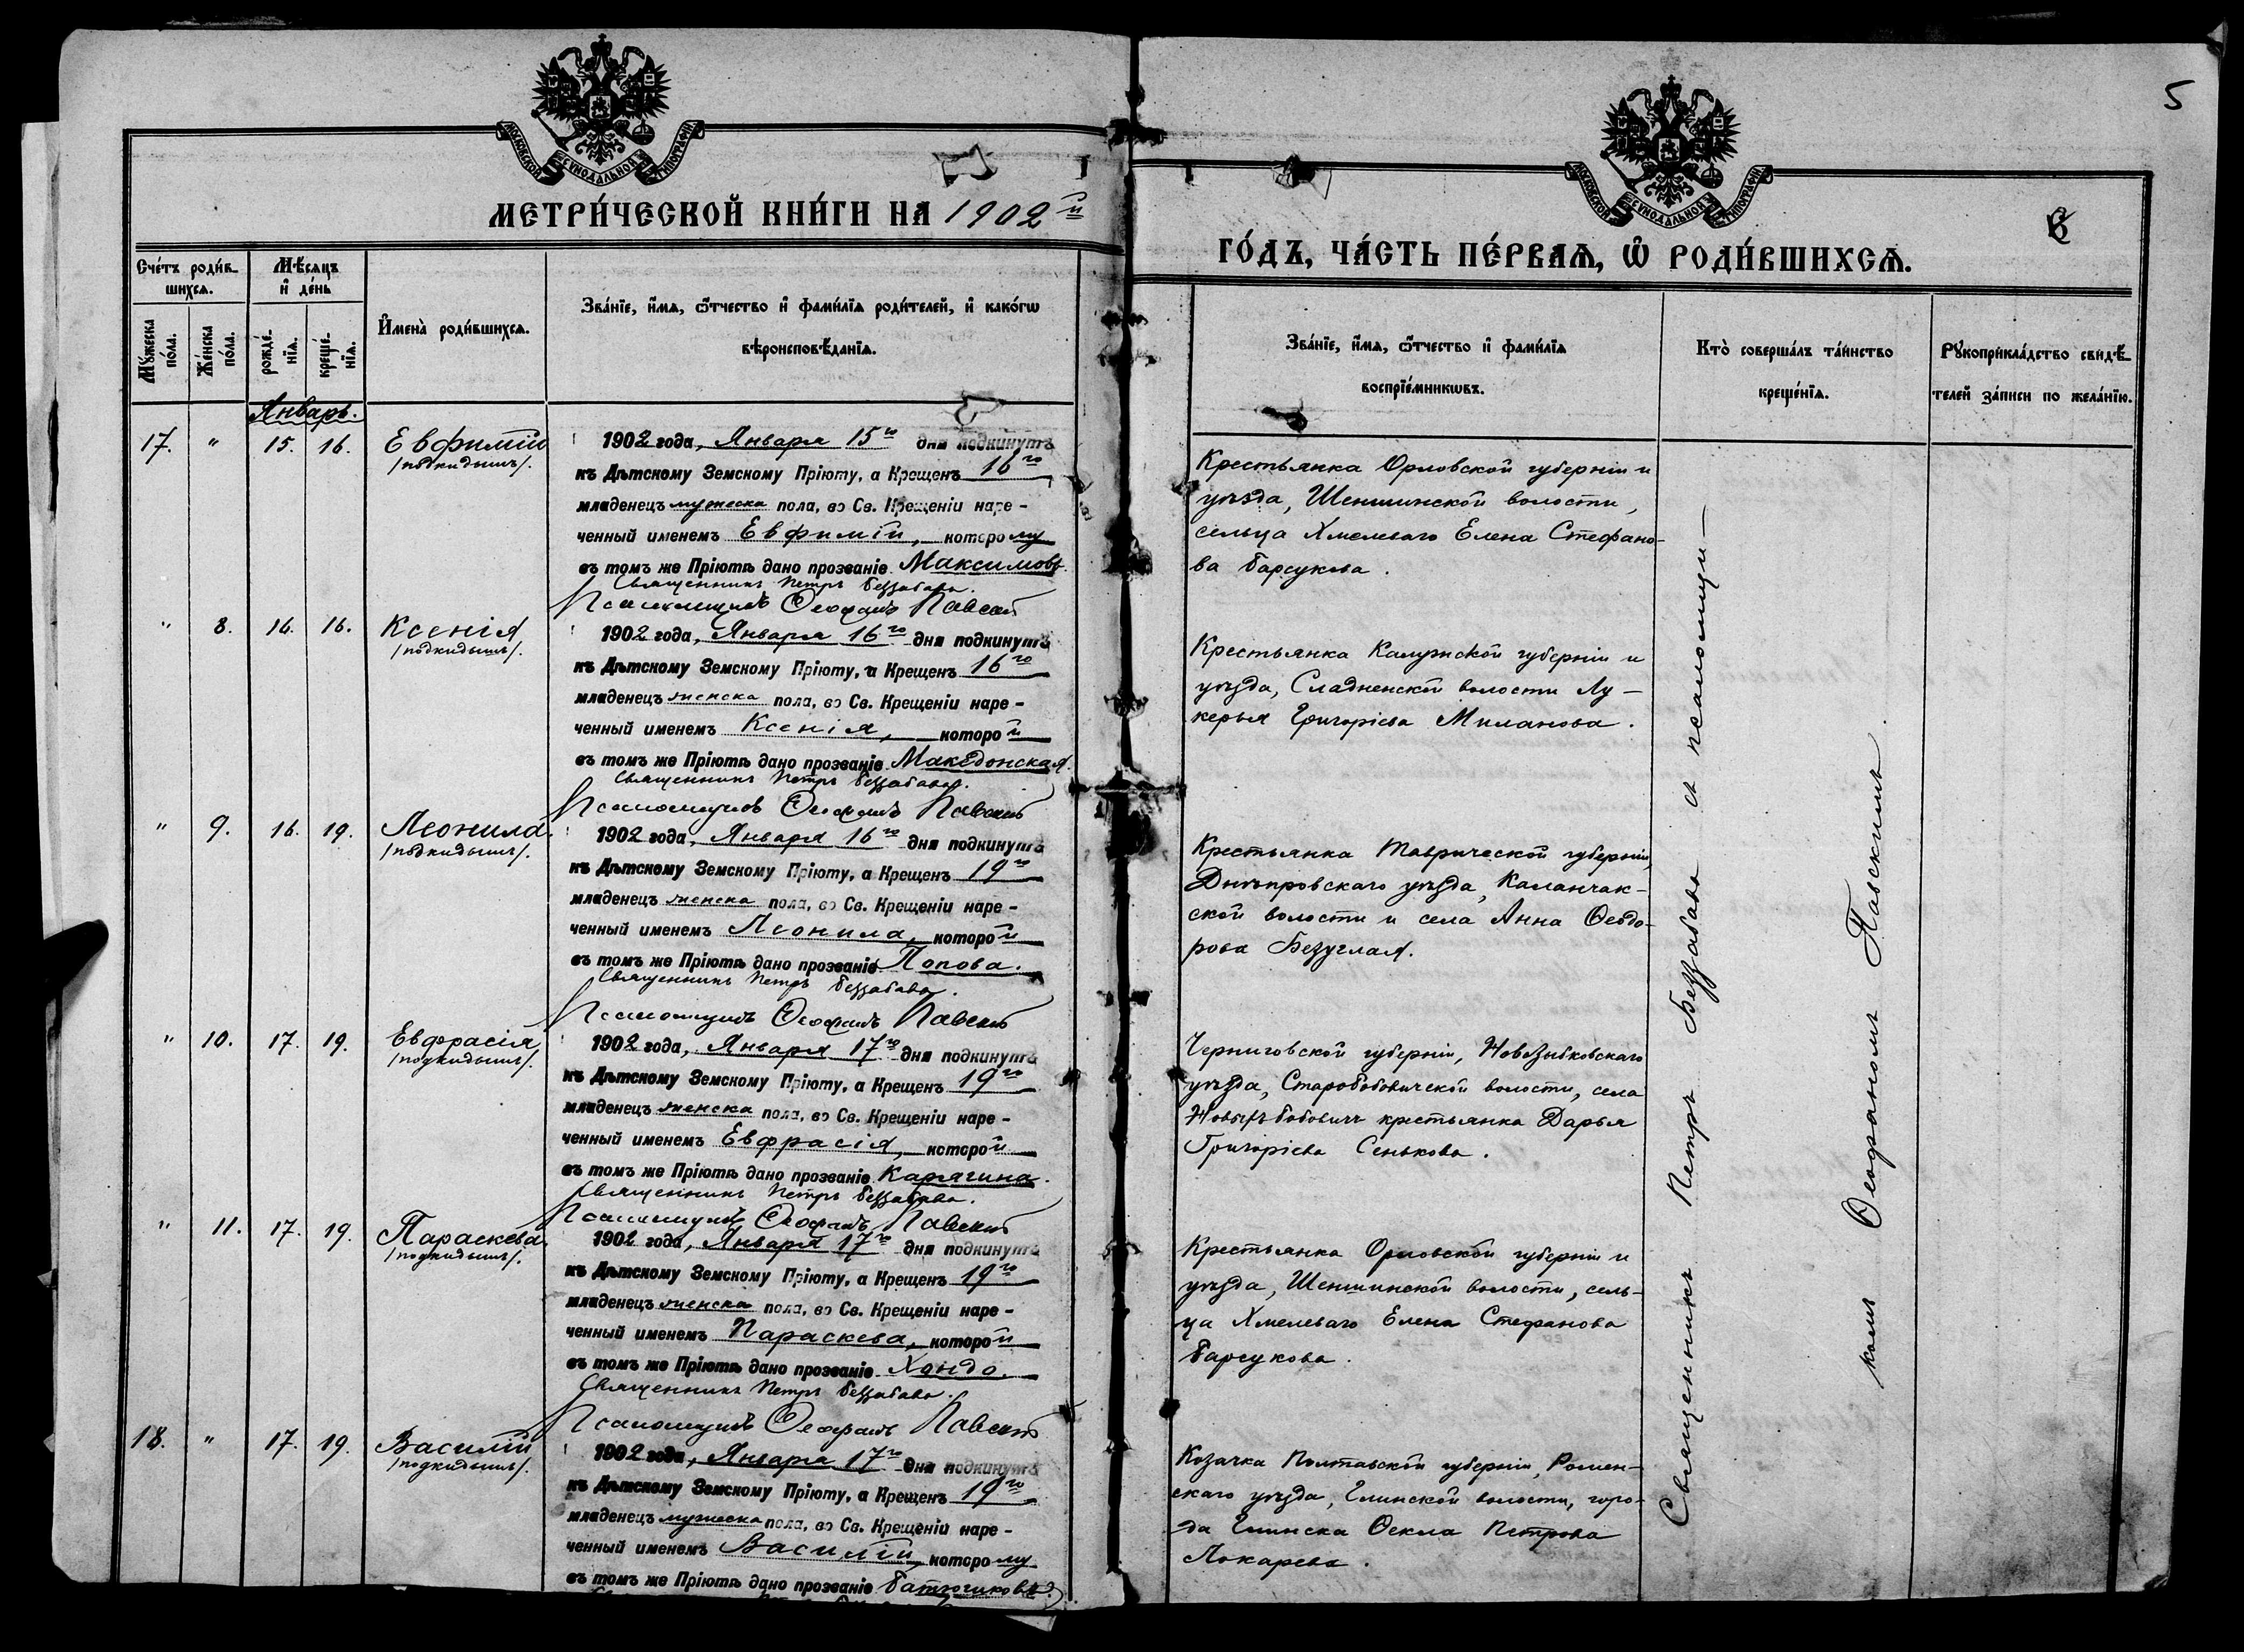 5
МОСКОВСКОЙ СѴНОДАЛЬНОЙ ТИПОГРАФІИ
МОСКОВСКОЙ СѴНОДАЛЬНОЙ ТИПОГРАФІИ
МЕТРИ́ЧЕСКОЙ КНИ́ГИ НА 1902й
ГО́ДЪ, ЧА́СТЬ ПЕ́РВАѦ, Ѡ҆ РОДИ́ВШИХСѦ.
6
Сче́тъ роди́в-
шихсѧ.
Мꙋ́жеска по́ла.
Же́нска по́ла.
Мѣ́сѧцъ
и҆ де́нь
рожде́-
нїѧ.
креще́-
нїѧ.
И҆мена̀ роди́вшихсѧ.
Зва́нїе, и҆́мѧ, ѻ҆́тчество и҆ фами́лїѧ роди́телей, и҆ како́гѡ
вѣроисповѣ́данїѧ.
Зва́нїе, и҆́мѧ, ѻ҆́тчество и҆ фами́лїѧ
воспрїе́мникѡвъ.
Кто̀ соверша́лъ та́инство
креще́нїѧ.
Рꙋкоприкла́дство свидѣ́-
телей за́писи по жела́нїю.
Январь.
17. " 15. 16. Евфимій
/подкидышъ/.
1902 года, Января 15го дня подкинутъ
къ Дѣтскому Земскому Пріюту, а Крещенъ 16го
младенецъ мужеска пола, во Св. Крещеніи наре-
ченный именемъ Евфимій, которому
въ томъ же Пріютѣ дано прозваніе Максимовъ.
Священникъ Петръ Беззабава.
Псаломщикъ Ѳеофанъ Павскій
Крестьянка Орловской губерніи и
уѣзда, Шеншинской волости,
сельца Хмелеваго Елена Стефано-
ва Барсукова.
" 8. 16. 16. Ксенія
/подкидышъ/.
1902 года, Января 16го дня подкинутъ
къ Дѣтскому Земскому Пріюту, а Крещенъ 16го
младенецъ женска пола, во Св. Крещеніи наре-
ченный именемъ Ксенія, которой
въ томъ же Пріютѣ дано прозваніе Македонская.
Священникъ Петръ Беззабава.
Псаломщикъ Ѳеофанъ Павскій
Крестьянка Калужской губерніи и
уѣзда, Сладненской волости Лу-
керья Григоріева Миланова.
" 9. 16. 19. Леонила
/подкидышъ/.
1902 года, Января 16го дня подкинутъ
къ Дѣтскому Земскому Пріюту, а Крещенъ 19го
младенецъ женска пола, во Св. Крещеніи наре-
ченный именемъ Леонила, которой
въ томъ же Пріютѣ дано прозваніе Попова.
Священникъ Петръ Беззабава.
Псаломщикъ Ѳеофанъ Павскій
Крестьянка Таврической губерніи,
Днѣпровскаго уѣзда, Каланчак-
ской волости и села Анна Ѳеодо-
рова Безуглая.
" 10. 17. 19. Евфрасія
/подкидышъ/.
1902 года, Января 17го дня подкинутъ
къ Дѣтскому Земскому Пріюту, а Крещенъ 19го
младенецъ женска пола, во Св. Крещеніи наре-
ченный именемъ Евфрасія, которой
въ томъ же Пріютѣ дано прозваніе Карягина.
Священникъ Петръ Беззабава.
Псаломщикъ Ѳеофанъ Павскій
Черниговской губерніи, Новозыбковскаго
уѣзда, Старобобовичской волости, села
Новыхъ Бобовичъ крестьянка Дарья
Григоріева Сенькова.
" 11. 17. 19. Параскева
/подкидышъ/.
1902 года, Января 17го дня подкинутъ
къ Дѣтскому Земскому Пріюту, а Крещенъ 19го
младенецъ женска пола, во Св. Крещеніи наре-
ченный именемъ Параскева, которой
въ томъ же Пріютѣ дано прозваніе Хондо.
Священникъ Петръ Беззабава.
Псаломщикъ Ѳеофанъ Павскій
Крестьянка Орловской губерніи и
уѣзда, Шеншинской волости, сель-
ца Хмелеваго Елена Стефанова
Барсукова.
18. " 17. 19. Василій
/подкидышъ/.
1902 года, Января 17го дня подкинутъ
къ Дѣтскому Земскому Пріюту, а Крещенъ 19го
младенецъ мужеска пола, во Св. Крещеніи наре-
ченный именемъ Василій которому
въ томъ же Пріютѣ дано прозваніе
Козачка Полтавской губерніи, Ромен-
скаго уѣзда, Глинской волости, горо-
да Глинска Ѳекла Петрова
Токарева.
Священникъ Петръ Беззабава съ псаломщи-
комъ Ѳеофаномъ Павскимъ.